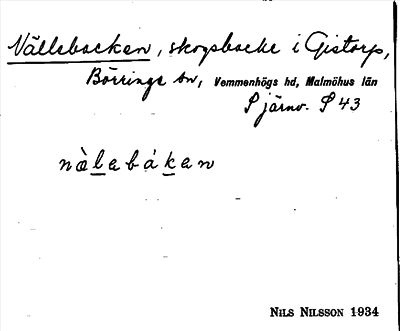 Nällebacken, skogsbacke i Gistorp,
Börringe sn, Vemmenhögs hd, Malmöhus län
Fjärnv. F 43
nàlebákan
NILS NILSSON 1934